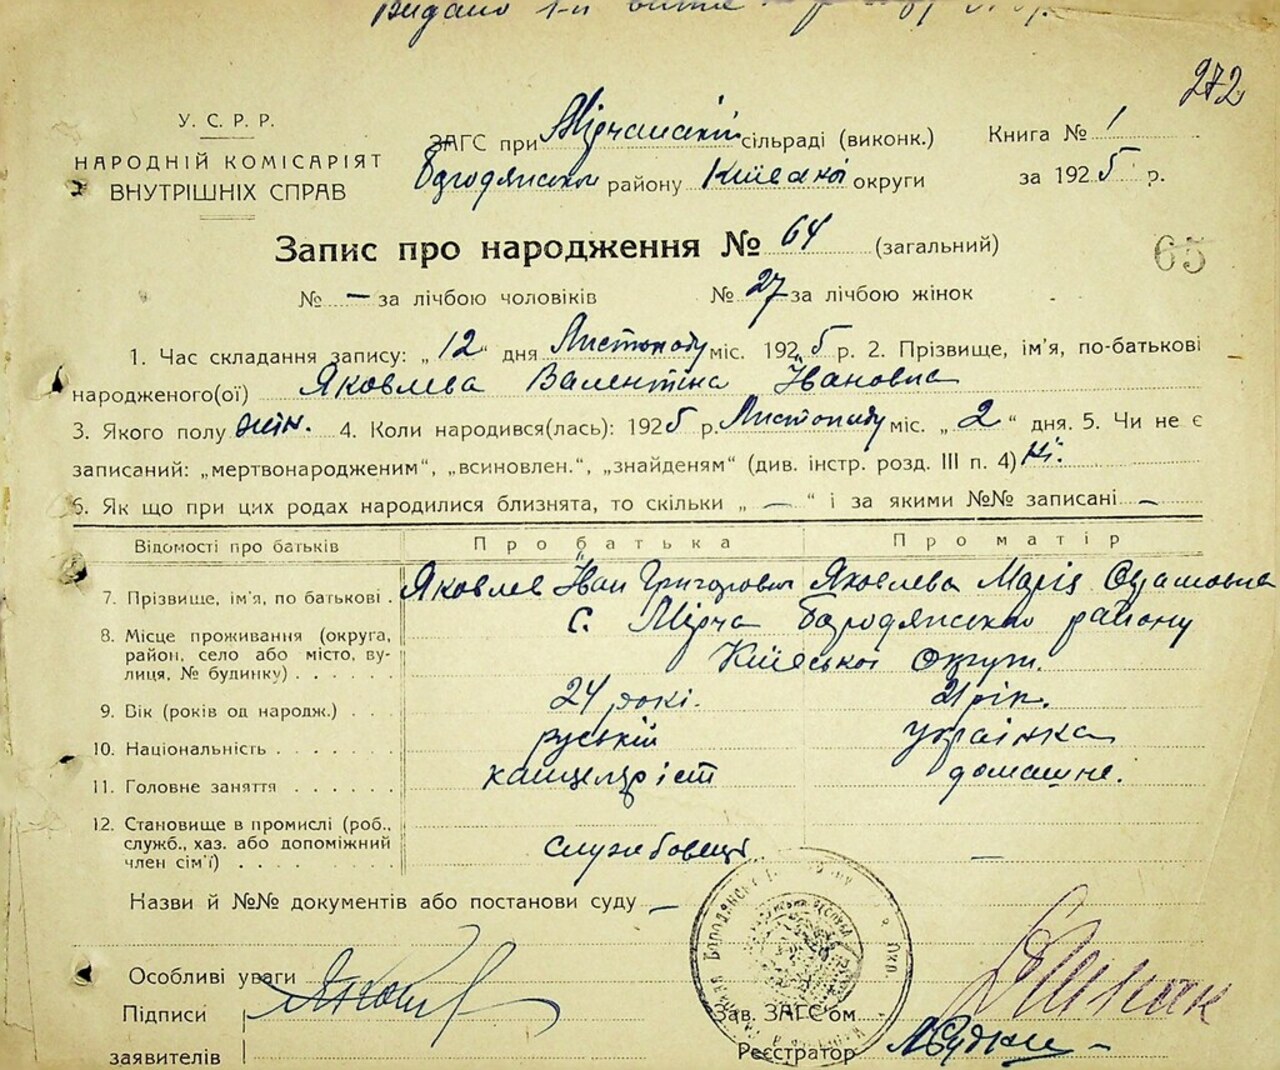 Видано 1-й
272
У. С. Р. Р.
НАРОДНІЙ КОМІСАРІЯТ
ВНУТРІШНІХ СПРАВ
ЗАГС при Мірчанскій сільраді (виконк.)
Бородянської району Київської округи
Книга № 1
за 1925 р.
Запис про народження № 64 (загальний)
65
№ — за лічбою чоловіків № 27 за лічбою жінок
1. Час складання запису: „12" дня Листопаду міс. 1925 р. 2. Прізвище, ім'я, по-батькові
народженого(ої) Яковлева Валентіна Івановна
3. Якого полу жін. 4. Коли народився(лась): 1925 р. Листопаду міс. „2" дня. 5. Чи не є
записаний: „мертвонародженим", „всиновлен.", „знайденям" (див. інстр. розд. III п. 4) Ні.
6. Як що при цих родах народилися близнята, то скільки „—" і за якими №№ записані —
Відомості про батьків Про батька Про матір
7. Прізвище, ім'я, по батькові . Яковлев Іван Григорович Яковлева Марія
8. Місце проживання (округа, район, село або місто, вулиця, № будинку) . . . . . . с. Мірча Бородянського району
Київської Округи.
9. Вік (років од народж.) . . . 24 рокі. 21 рік.
10. Національність . . . . . . . руській українка
11. Головне заняття . . . . . . канцелярist домашне.
12. Становище в промислі (роб., служб., хаз. або допоміжний член сім'ї) . . . . . . службовець —
Назви й №№ документів або постанови суду —
Особливі уваги
Підписи
заявителів
Зав. ЗАГС'ом
Реєстратор